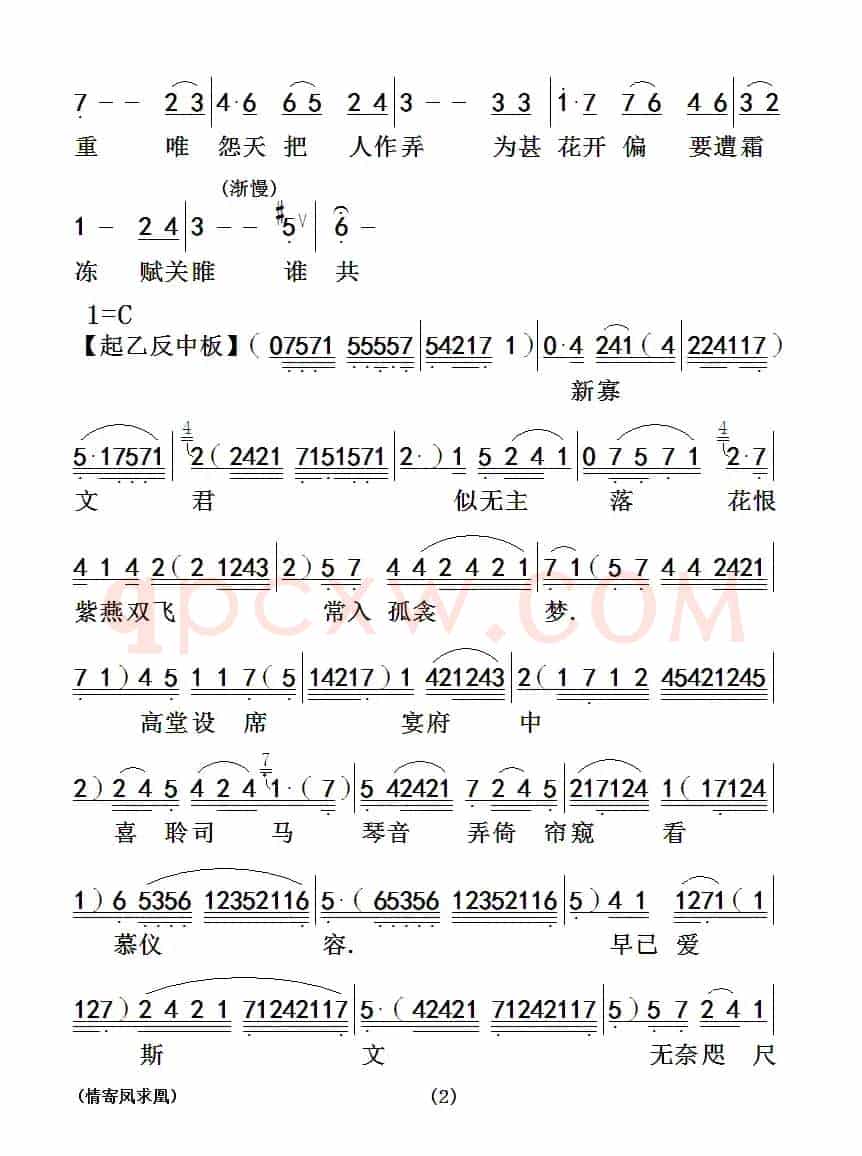 7 - - 2 3 | 4·6 6 5 2 4 | 3 - - 3 3 | 1·7 7 6 4 6 | 3 2
重 唯 怨天 把 人作弄 为甚 花开 偏 要遭霜
(渐慢)
1 - 2 4 | 3 - - #5 V | 6 -
冻 赋关雎 谁 共
1=C
【起乙反中板】( 07571 55557 | 54217 1 ) | 0·4 241 ( 4 | 224117 )
新寡
5·17571 | 4 2 ( 2421 7151571 | 2· ) 1 5 2 4 1 | 0 7 5 7 1 4 2·7
文 君 似无主 落 花恨
4 1 4 2 ( 2 1243 | 2 ) 5 7 4 4 2 4 2 1 | 7 1 ( 5 7 4 4 2421
紫燕双飞 常入 孤衾 梦.
qpcxw.COM
7 1 ) 4 5 1 1 7 ( 5 | 14217 ) 1 421243 | 2 ( 1 7 1 2 45421245
高堂设 席 宴府 中
2 ) 2 4 5 4 2 4 7 1· ( 7 ) | 5 42421 7 2 4 5 | 217124 ( 17124
喜 聆司 马 琴音 弄倚 帘窥 看
1 ) 6 5356 12352116 | 5· ( 65356 12352116 | 5 ) 4 1 1271 ( 1
慕仪 容. 早已 爱
127 ) 2 4 2 1 71242117 | 5· ( 42421 71242117 | 5 ) 5 7 2 4 1
斯 文 无奈咫 尺
(情寄凤求凰) (2)